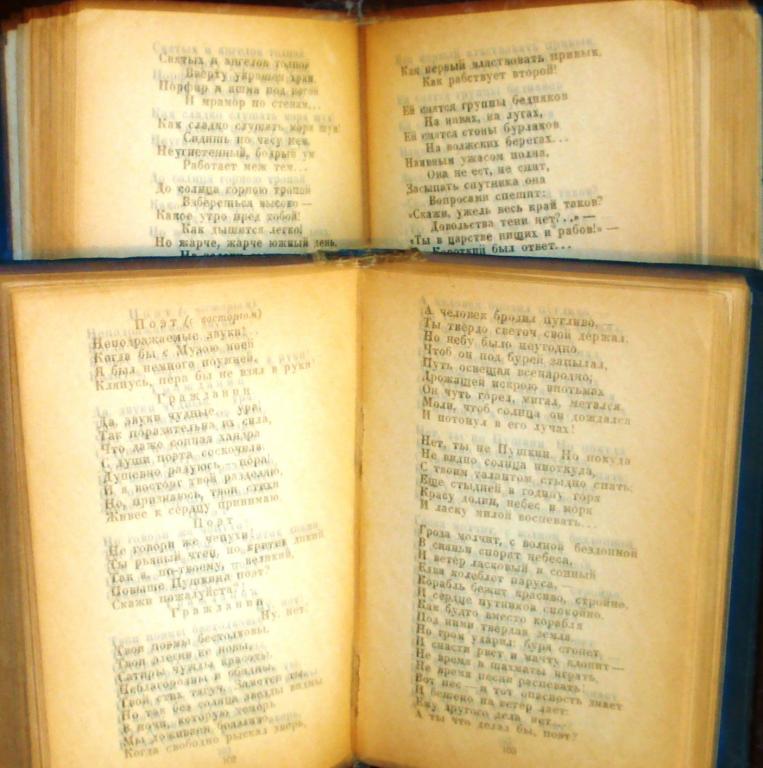 Святых и ангелов толпой
Вверху украшен храм.
Порфир и яшма под ногой
И мрамор по стенам...
Как сладко слушать моря шум!
Сидишь по часу нем,
Неугнетенный, бодрый ум
Работает меж тем...
До солнца горною тропой
Взберешься высоко —
Какое утро пред тобой!
Как дышится легко!
Но жарче, жарче южный день,
Как первый властвовать привык,
Как рабствует второй!
Ей снятся группы бедняков
На нивах, на лугах,
Ей снятся стоны бурлаков
На волжских берегах...
Наивным ужасом полна,
Она не ест, не спит,
Засыпать спутника она
Вопросами спешит:
«Скажи, ужель весь край таков?
Довольства тени нет?..» —
«Ты в царстве нищих и рабов!» —
Короткий был ответ...
Поэт (с восторгом)
Неподражаемые звуки!..
Когда бы с Музою моей
Я был немного поумней,
Клянусь, пера бы не взял в руки!
Гражданин
Да, звуки чудные... ура!
Так поразительна их сила,
Что даже сонная хандра
С души поэта соскочила.
Душевно радуюсь — пора!
И я восторг твой разделяю,
Но, признаюсь, твои стихи
Живее к сердцу принимаю.
Поэт
Не говори же чепухи!
Ты рьяный чтец, но критик дикий.
Так я, по-твоему, — великий,
Повыше Пушкина поэт?
Скажи пожалуйста?!
Гражданин
Ну, нет!
Твои поэмы бестолковы,
Твои элегии не новы,
Сатиры чужды красоты,
Неблагородны и обидны,
Твой стих тягуч. Заметен ты,
Но так без солнца звезды видны.
В ночи, которую теперь
Мы доживаем боязливо,
Когда свободно рыскал зверь,
102
А человек бродил пугливо,
Ты твердо светоч свой держал,
Но небу было неугодно,
Чтоб он под бурей запылал,
Путь освещая всенародно;
Дрожащей искрою впотьмах
Он чуть горел, мигал, метался.
Моли, чтоб солнца он дождался
И потонул в его лучах!
Нет, ты не Пушкин. Но покуда
Не видно солнца ниоткуда,
С твоим талантом стыдно спать;
Еще стыдней в годину горя
Красу долин, небес и моря
И ласку милой воспевать...
Гроза молчит, с волной бездонной
В сияньи спорят небеса,
И ветер ласковый и сонный
Едва колеблет паруса, —
Корабль бежит красиво, стройно,
И сердце путников спокойно,
Как будто вместо корабля
Под ними твердая земля.
Но гром ударил; буря стонет,
И снасти рвет, и мачту клонит —
Не время в шахматы играть,
Не время песни распевать!
Вот пес — и тот опасность знает
И бешено на ветер лает:
Ему другого дела нет...
А ты что делал бы, поэт?
103